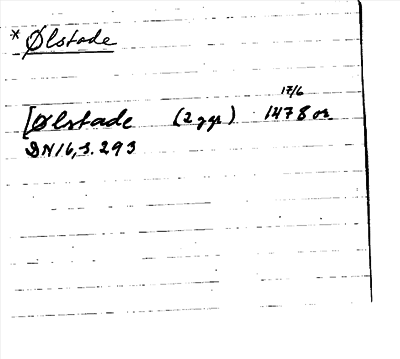 * Ølstade
17/6
[Ølstade (2 ggr) 1478 or.
DN 16, s. 293